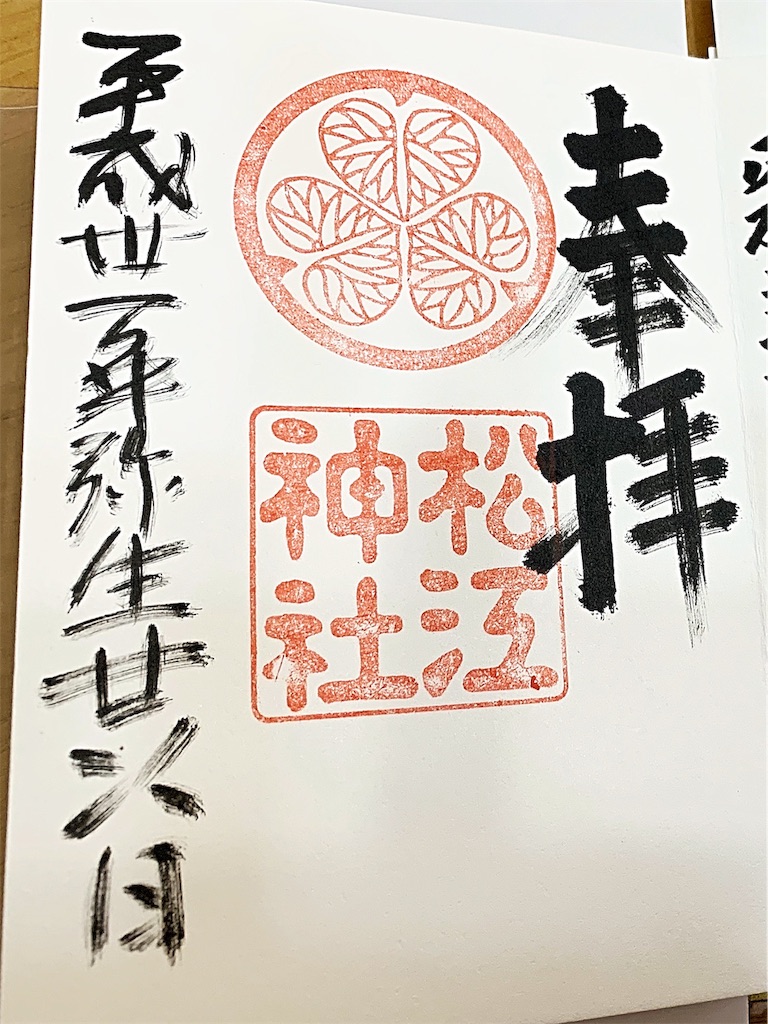 奉拝
松江
神社
平成丗一年弥生廿六日